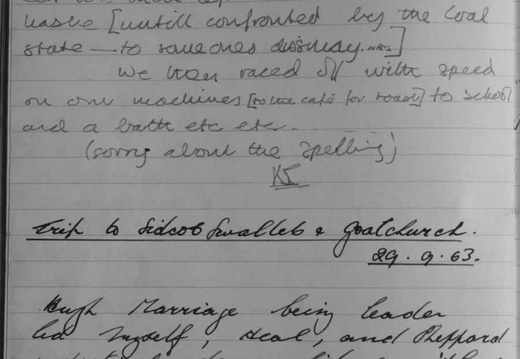 haste [untill confronted by the local
state — to someones dismay.]
We then raced off with speed
on our machines [to the café for roast] to school
and a bath etc etc.
(sorry about the spelling)
Trip to Sidcot Swallet & Goatchurch.
29.9.63.
Hugh Marriage being leader
led myself, Heal, and Sheppard